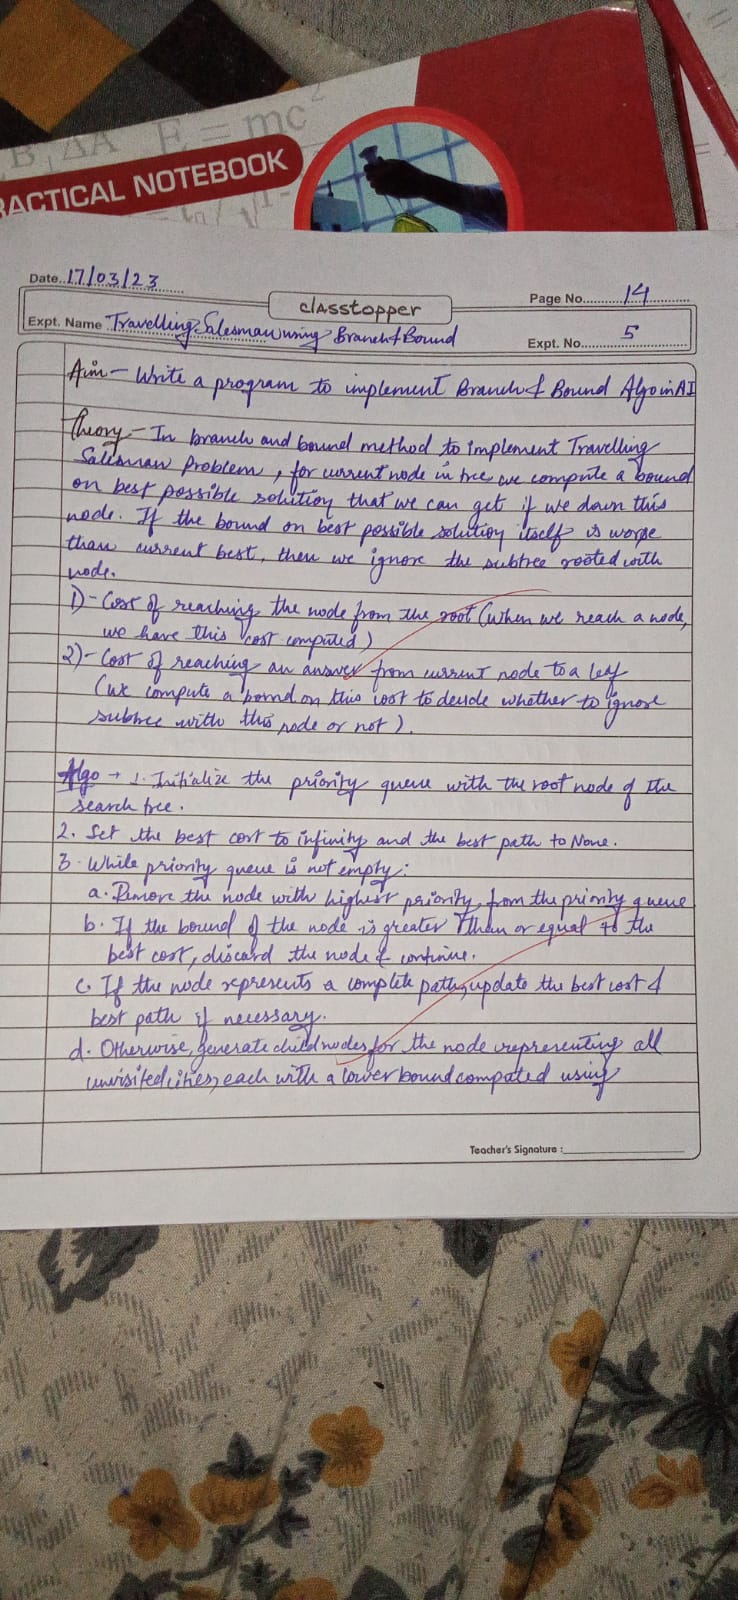 B, ΔA E = mc²
RACTICAL NOTEBOOK
Date..17/03/23
classtopper
Page No. 14
Expt. Name Travelling Salesman using Branch & Bound
Expt. No. 5
Aim - Write a program to implement Branch & Bound Algo in AI
Theory - In branch and bound method to implement Travelling
Salesman Problem, for current node in tree we compute a bound
on best possible solution that we can get if we down this
node. If the bound on best possible solution itself is worse
than current best, then we ignore the subtree rooted with
node.
1) - Cost of reaching the node from the root (When we reach a node,
we have this cost computed)
2) - Cost of reaching an answer from current node to a leaf
(we compute a bound on this cost to decide whether to ignore
subtree with this node or not).
Algo → 1. Initialize the priority queue with the root node of the
search tree.
2. Set the best cost to infinity and the best path to None.
3. While priority queue is not empty:
a. Remove the node with highest priority from the priority queue
b. If the bound of the node is greater than or equal to the
best cost, discard the node & continue.
c. If the node represents a complete path, update the best cost &
best path if necessary.
d. Otherwise, generate child nodes for the node representing all
unvisited cities, each with a lower bound computed using
Teacher's Signature :